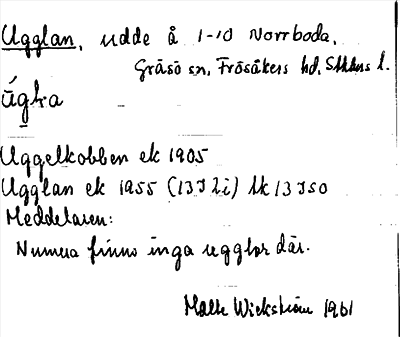 Ugglan, udde å 1-10 Norrboda,
Gräsö sn, Frösåkers hd, Sthlms l.
ū́gka
Uggelkobben ek 1905
Ugglan ek 1955 (13J 2i) tk 13 J SO
Meddelaren:
Numera finns inga ugglor där.
Malte Wickström 1961